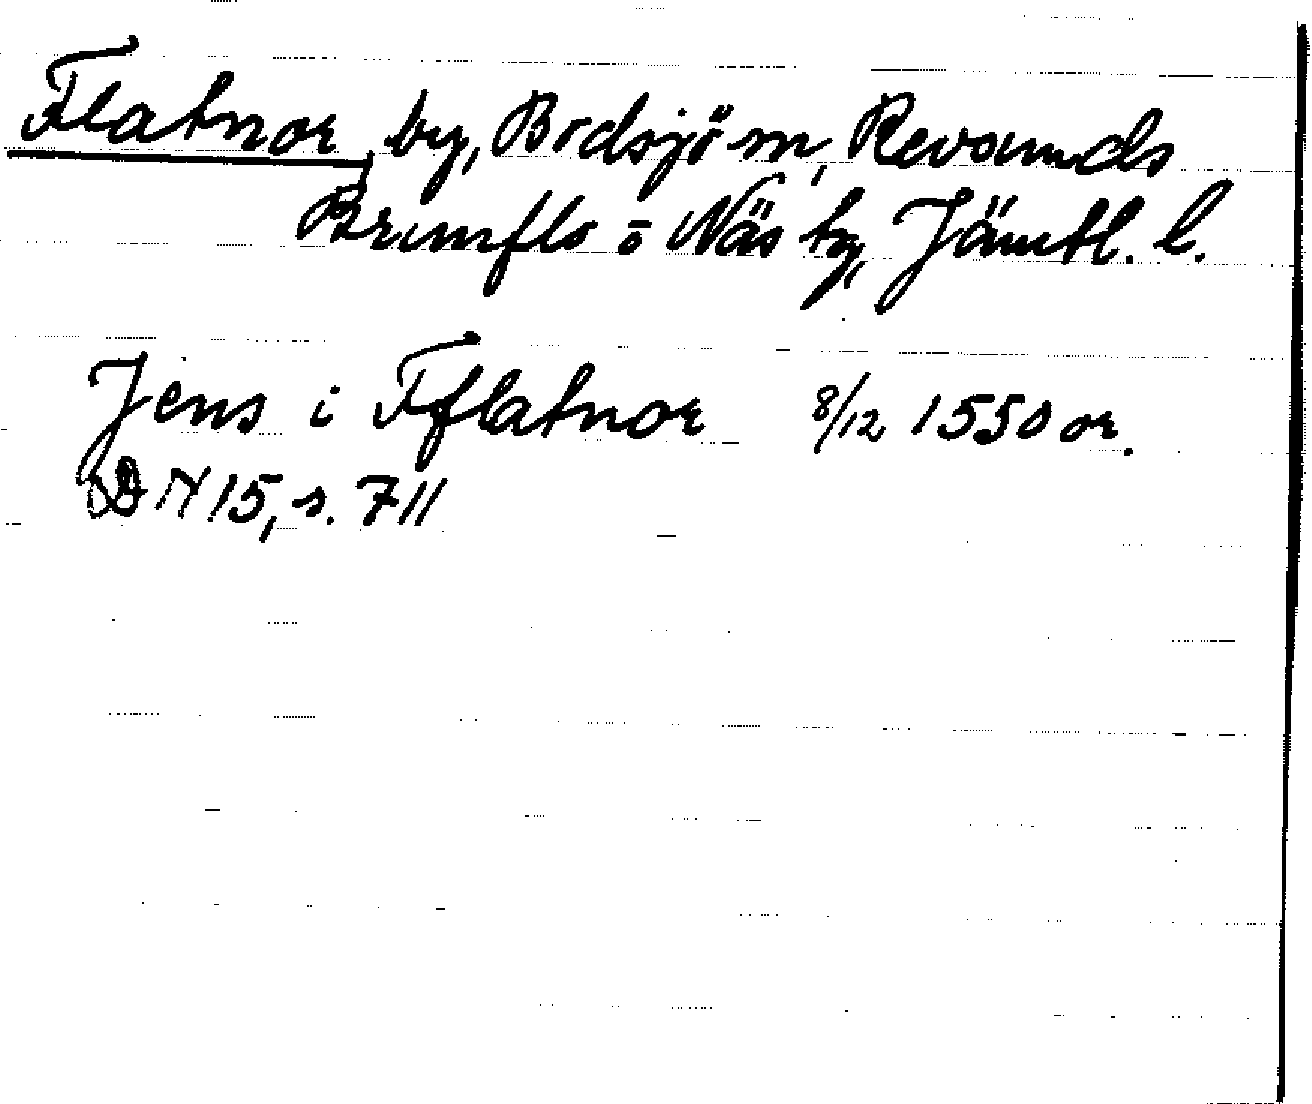 Flatnor, by, Bodsjö sn, Revsunds
Brunflo o Näs tg, Jämtl. l.
Jens i Fflatnor 8/12 1550 or.
DN 15, s. 711